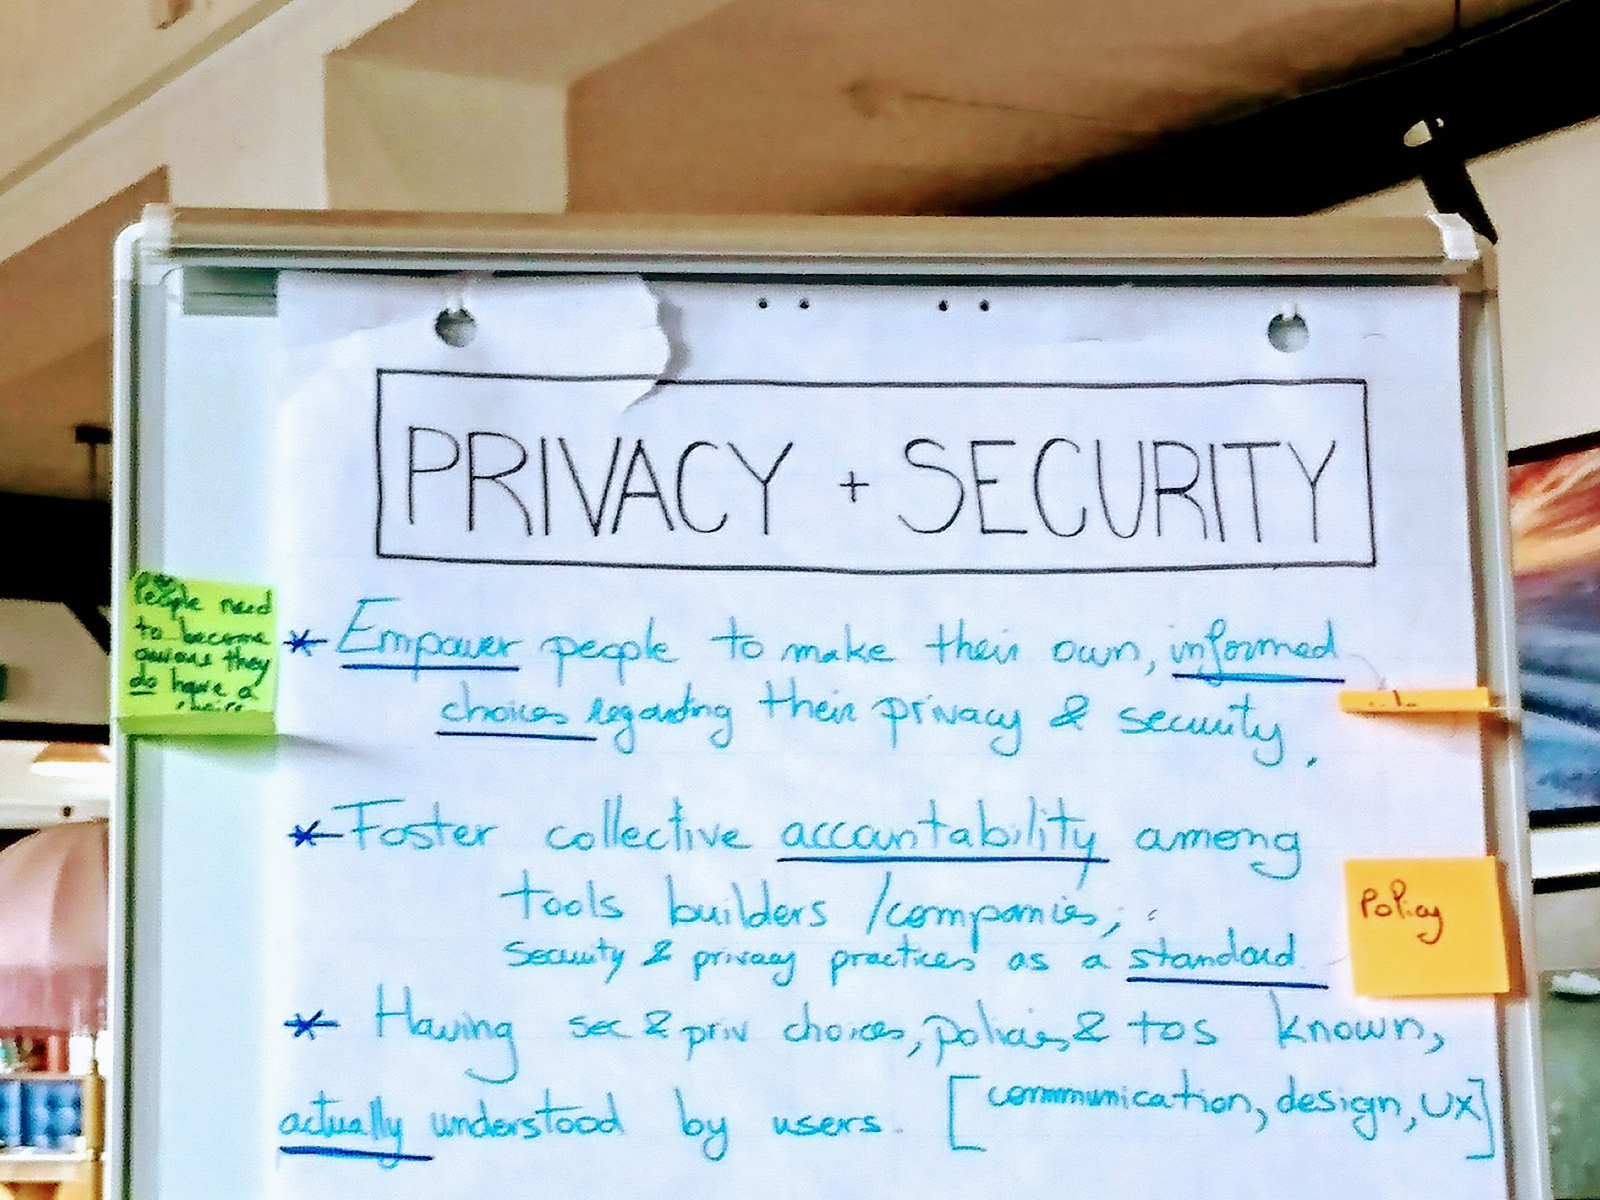 PRIVACY + SECURITY
People need
to become
they
do have a
* Empower people to make their own, informed
choices regarding their privacy & security.
* Foster collective accountability among
tools builders / companies,
security & privacy practices as a standard.
Policy
* Having sec & priv choices, policies & tos known,
actually understood by users. [communication, design, UX]